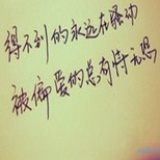 得不到的永远在骚动
被偏爱的总有恃无恐